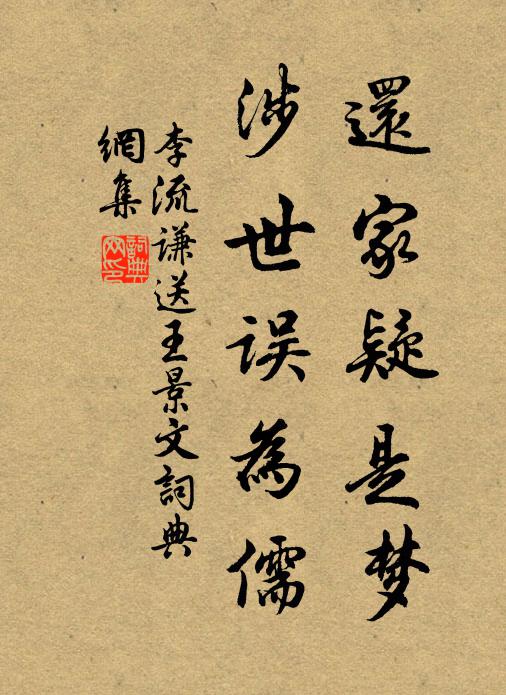 還家疑是梦
涉世误為儒
李流谦送王景文詞典
網集
詞典网印